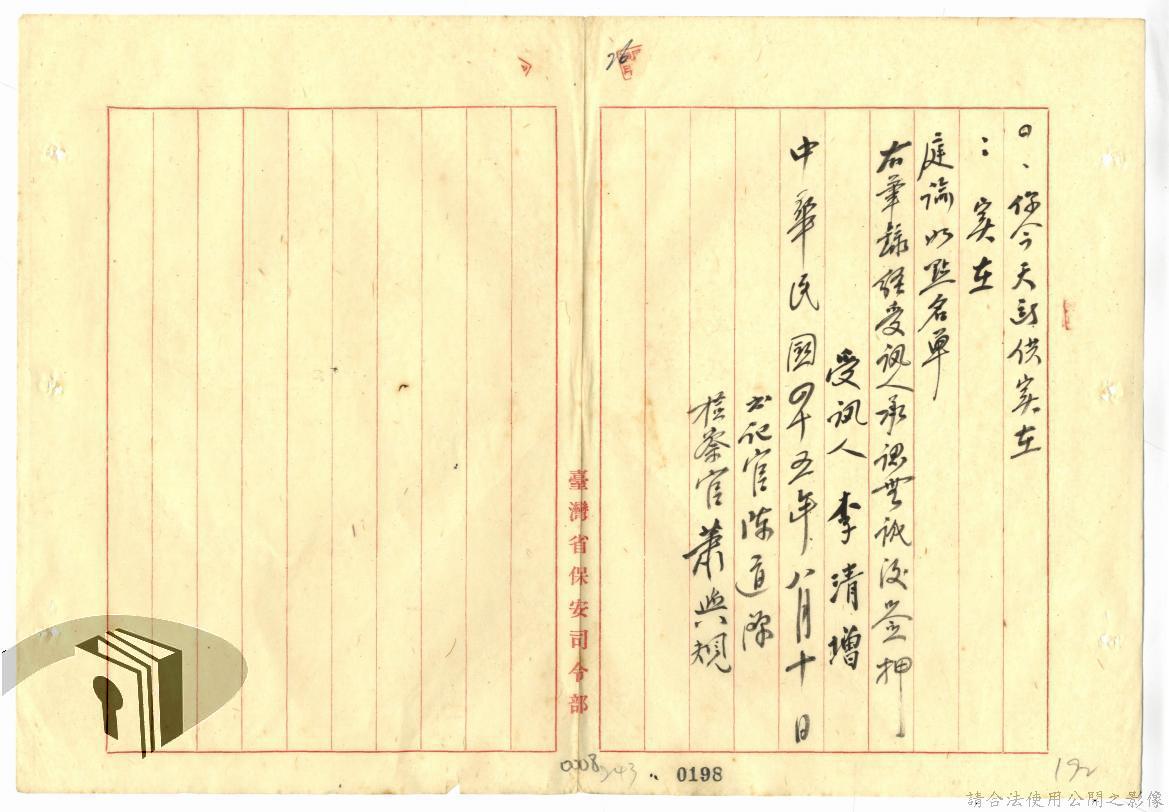 問、你今天所供實在
：實在
庭諭以點名單
右筆錄經受訊人承認無訛後簽押
受訊人 李清增
中華民國四十五年八月十日
書記官陳道
檢察官蕭與規
臺灣省保安司令部
0008
243
0198
192
請合法使用公開之影像